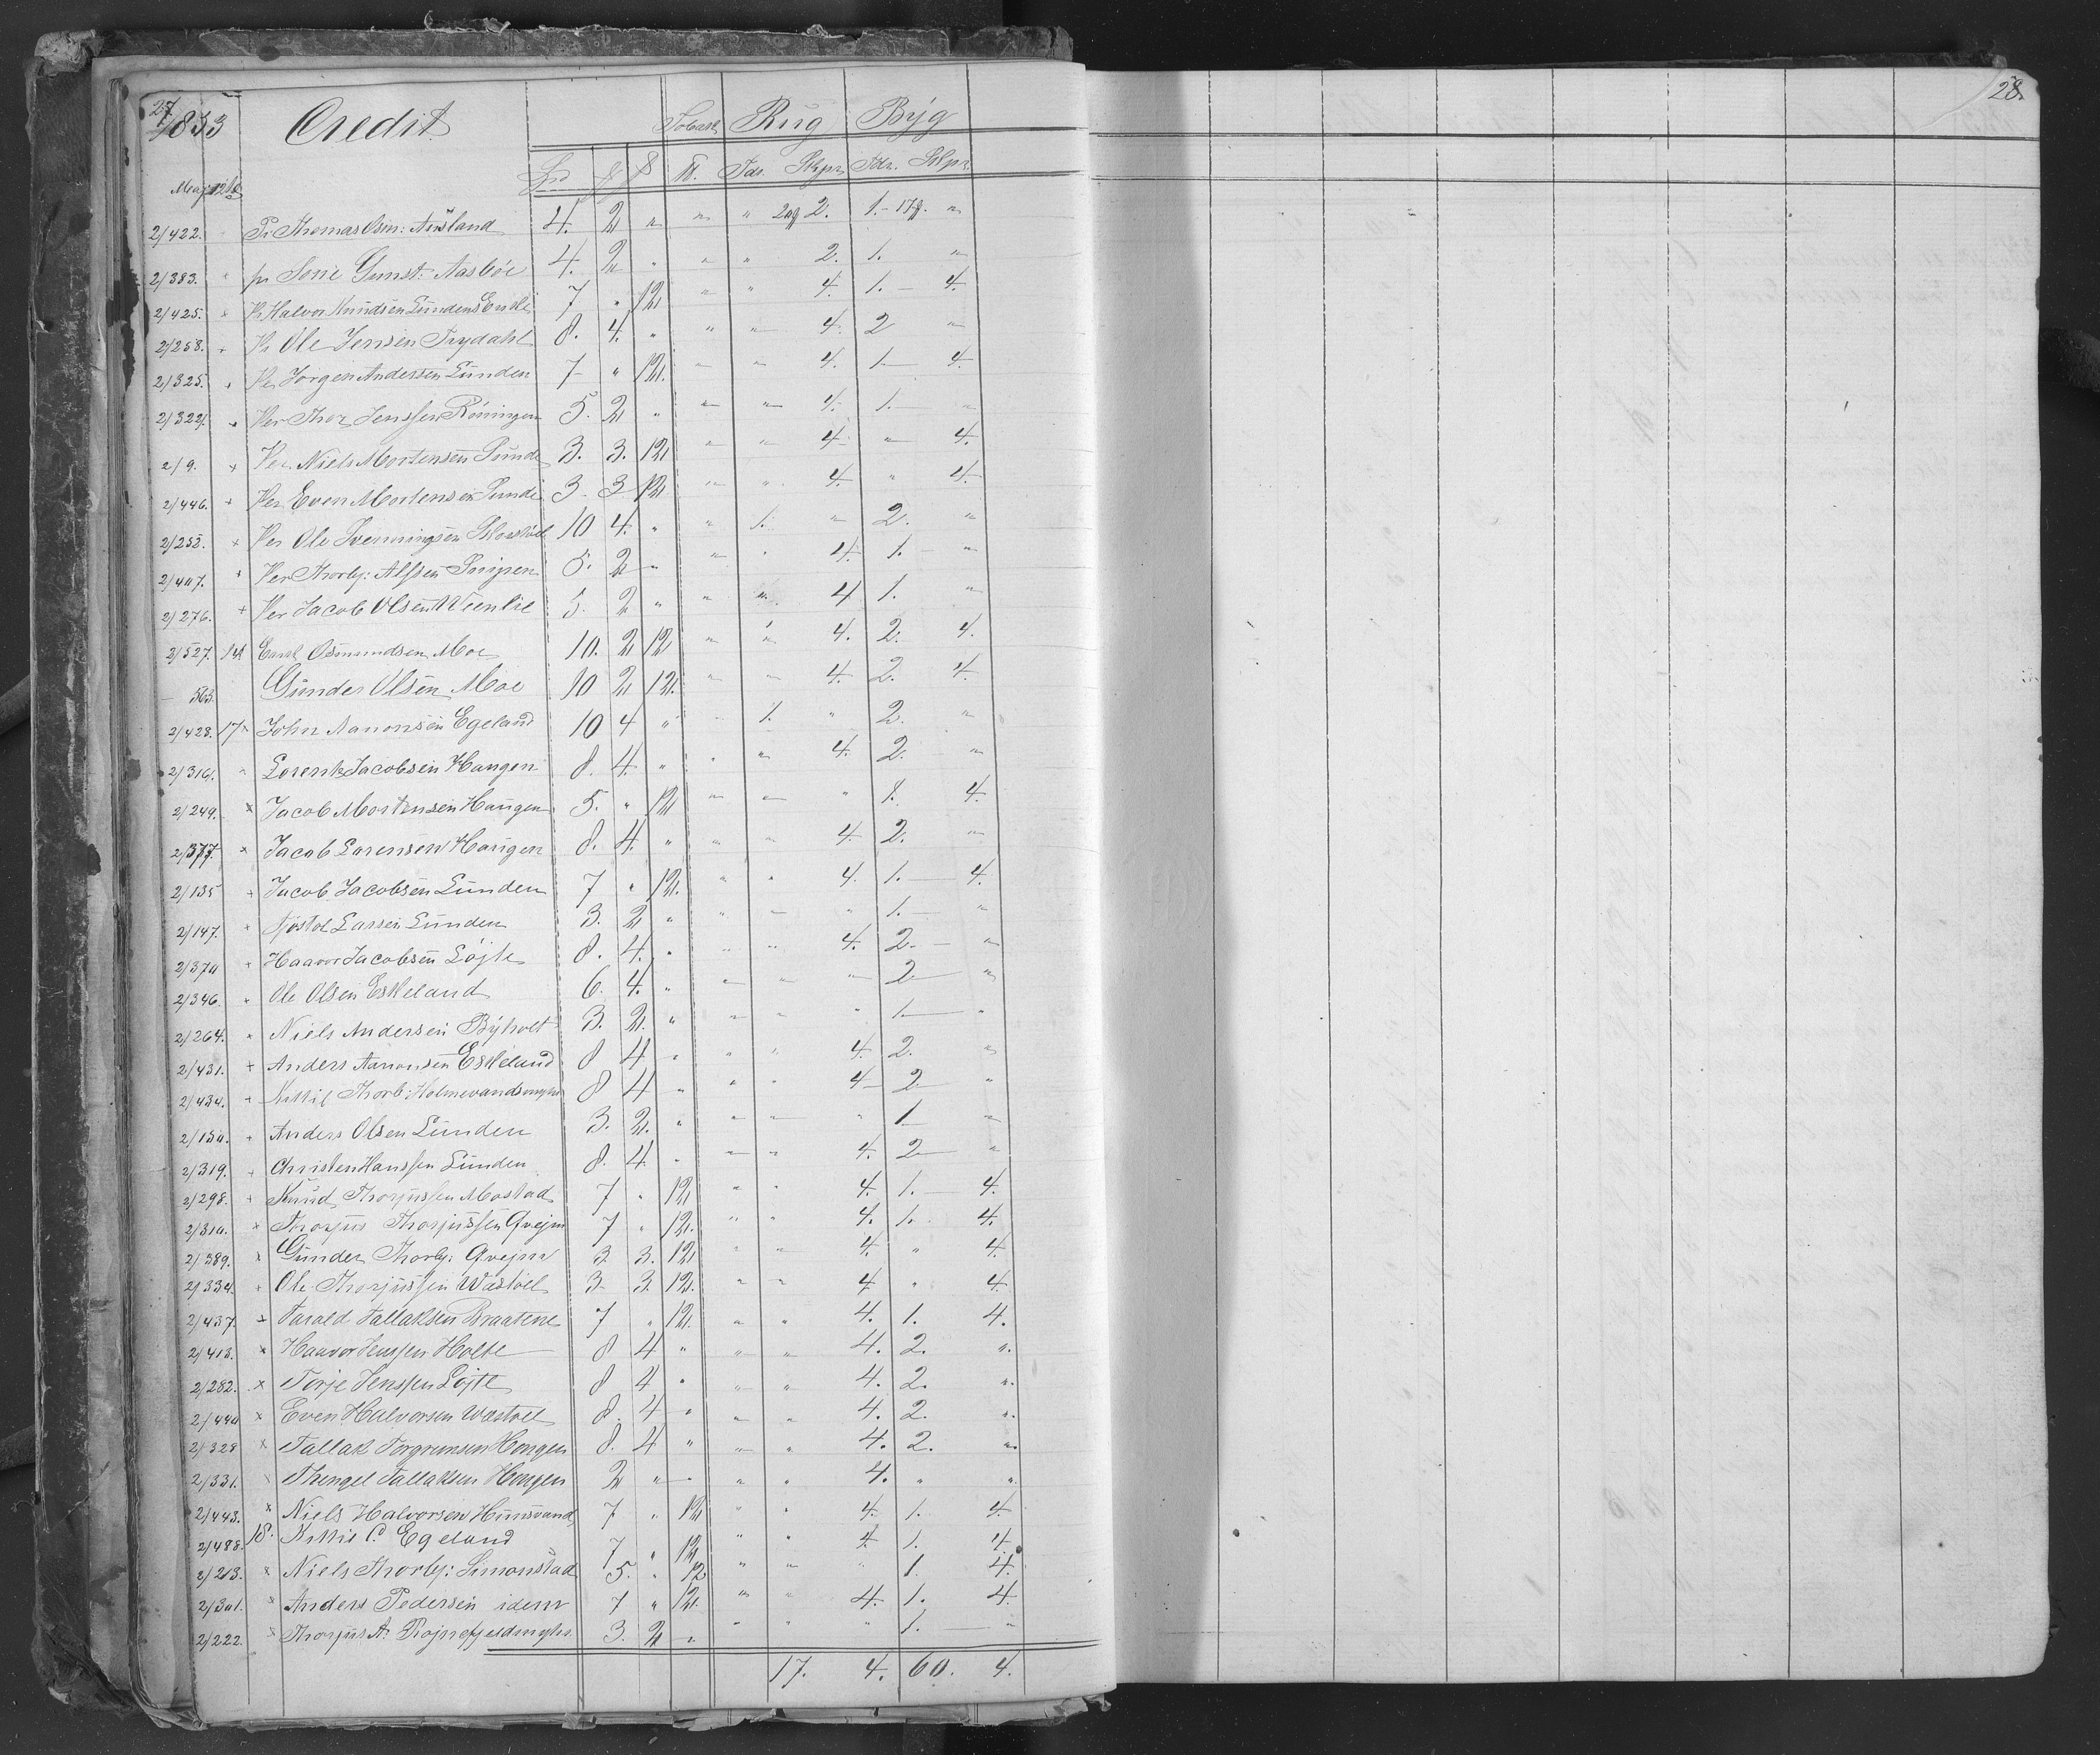 27
1853 Credit Tobak Rug Byg
Spd ℔. Tdr. Skpr Tdr. Skpr.
Maj 12te
2/422. Pr Thomas Osm: Ausland 4. 2 " " " 2. 1. "
2/383. " pr Sorie Gunst: Aasböe 4. 2 " " " 2. 1. "
2/425. " Pr Halvor Knudsen Lundens Enke 7 " 12 " " 4. 1. — 4.
2/258. " Pr Ole Jensen Trydahl 8. 4. " " " 4. 2 "
2/325. " Per Jörgen Andersen Lunden 7 " 12. " " 4. 1 — 4.
2/322. " Per Thor Jenssen Röningen 5. 2 " " " 4. 1. "
2/9. × Per Niels Mortensen Sunde 3. 3. 12 " " 4 " 4.
2/446. + Per Even Mortensen Sunde 3. 3 12 " " 4. " 4.
2/252. × Per Ole Svenningsen 10 4. " " 1. " 2. "
2/407. × Per Thorbj: Alfsen 5. 2 " " " 4. 1. "
2/276. + Per Jacob Olsen Weenlie 5. 2 " " " 4 1. "
2/527. 14 Osmundsen Moe 10. 2 12 " " 4. 2. 4.
— 563. Gunder Olsen Moe 10 2 12. " " 4. 2. 4
2/428. 17 × John Aanonsen Egeland 10 4 " " 1. " 2. "
2/316. " Lorents Jacobsen Haugen 8. 4. " " " 4. 2. "
2/249. × Jacob Mortensen Haugen 5. " 12 " " " 1. 4.
2/377. × Jacob Lorensen Haugen 8. 4. " " " 4. 2. "
2/135 + Jacob Jacobsen Lunden 7 " 12. " " 4. 1. — 4.
2/147. + Ajöstol Larsen Lunden 3. 2 " " " " 1. — "
2/370 " Haavor Jacobsen Löjte 8. 4. " " " 4. 2. — "
2/346. " Ole Olsen Eskeland 6. 4. " " " " 2 — "
2/264. " Niels Andersen Byholt 3. 2. " " " " 1 — "
2/431. + Anders Aanonsen Eskeland 8 4 " " " 4. 2. "
2/434. " Kittil Thorb: Holmevandsmyhr 8 4 " " " 4 2 "
2/150. " Anders Olsen Lunden 3. 2. " " " " 1 "
2/319. + Christen Hanssen Lunden 8. 4. " " " 4. 2 "
2/298. + Knud Thorjussen Mostad 7 " 12 " " 4. 1. 4.
2/310. × Thorjus Thorjussen Qvejm 7 " 12. " " 4. 1. 4.
2/389. × Gunder Thorbj: Qvejm 3. 3. 12 " " 4. " 4.
2/334. + Ole Thorjussen Wastöel 3. 3. 12. " " 4 " 4.
2/437. + Tarald Tallaksen Braatene 7 " 12. " " 4. 1. 4.
2/413. × Haavor Jenssen Holte 8 4 " " " 4. 2. "
2/282. × Torje Jenssen Löjte 8 4 " " " 4. 2. "
2/440 × Even Halvorsen Wastöel 8. 4 " " " 4. 2. "
2/328 × Tallak Torgrimsen Hougen 8. 4 " " " 4. 2. "
2/331. × Thengel Tallaksen Hougen 2 " " " " 4. " "
2/443. × Niels Halvorsen Hunsvand 7 " 12 " " 4. 1. 4.
2/488. 18. Kittil C. Egeland 7 " 12 " " 4. 1. 4.
2/213. × Niels Thorbj: Simonstad 5. " 12 " " 1. 4.
2/301. × Anders Pedersen idem 7 " 12. " " 4. 1. 4.
2/222. × Thorjus A: Röjnefjeldmyhr 3. 2 " " " " 1. "
17. 4. 60. 4.
28.